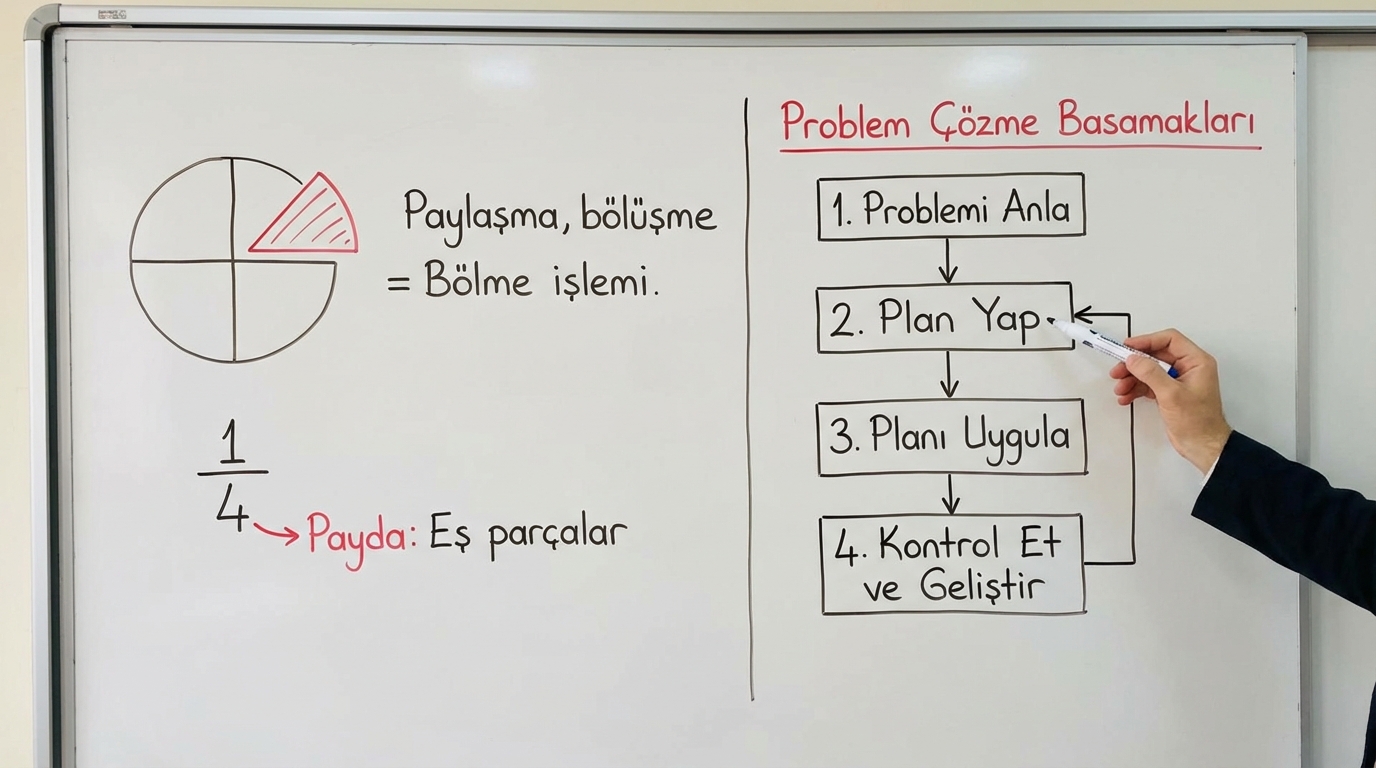 Paylaşma, bölüşme
= Bölme işlemi.
1
4
Payda: Eş parçalar
Problem Çözme Basamakları
1. Problemi Anla
2. Plan Yap
3. Planı Uygula
4. Kontrol Et
ve Geliştir